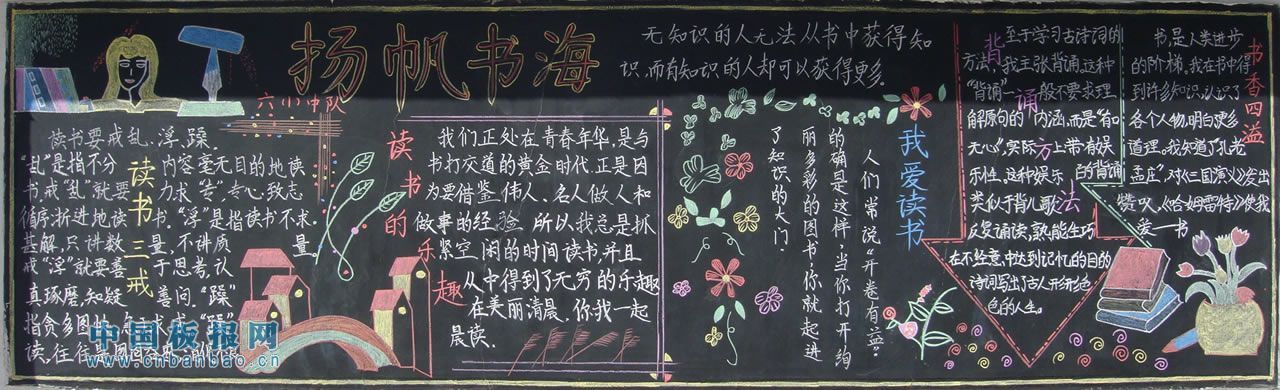 扬帆书海
六(1)中队
无知识的人无法从书中获得知
识,而有知识的人却可以获得更多。
读书三戒
读书要戒乱、浮、躁。
“乱”是指不分 内容毫无目的地读
书,戒“乱”就要 力求“专”,专心致志
循序渐进地读书。“浮”是指读书不求
甚解,只讲数 量,不讲质 量。
戒“浮”就要善 于思考,认
真琢磨,知疑 善问。“躁”
指贪多图快
读,往往
读书的乐趣
我们正处在青春年华,是与
书打交道的黄金时代,正是因
为要借鉴伟人、名人做人和
做事的经验,所以我总是抓
紧空闲的时间读书,并且
从中得到了无穷的乐趣
在美丽清晨,你我一起
晨读。
我爱读书
人们常说“开卷有益”
的确是这样,当你打开绚
丽多彩的图书,你就起进
了知识的大门
背诵方法
至于学习古诗词的
方法,我主张背诵。这种
“背诵”一般不要求理
解原句的内涵,而是“有口
无心”,实际上带有娱
乐性。这种娱乐 的背诵
类似于背儿歌
反复诵读,熟能生巧
在不经意中达到记忆的目的
诗词写出了古人形形色
色的人生。
书香四溢
书,是人类进步
的阶梯。我在书中得
到许多知识,认识了
各个人物,明白更多
道理。我知道了“孔老
孟庄”,对《三国演义》发出
赞叹,《哈姆雷特》使我
爱一书
中国板报网
www.cnbanbao.cn